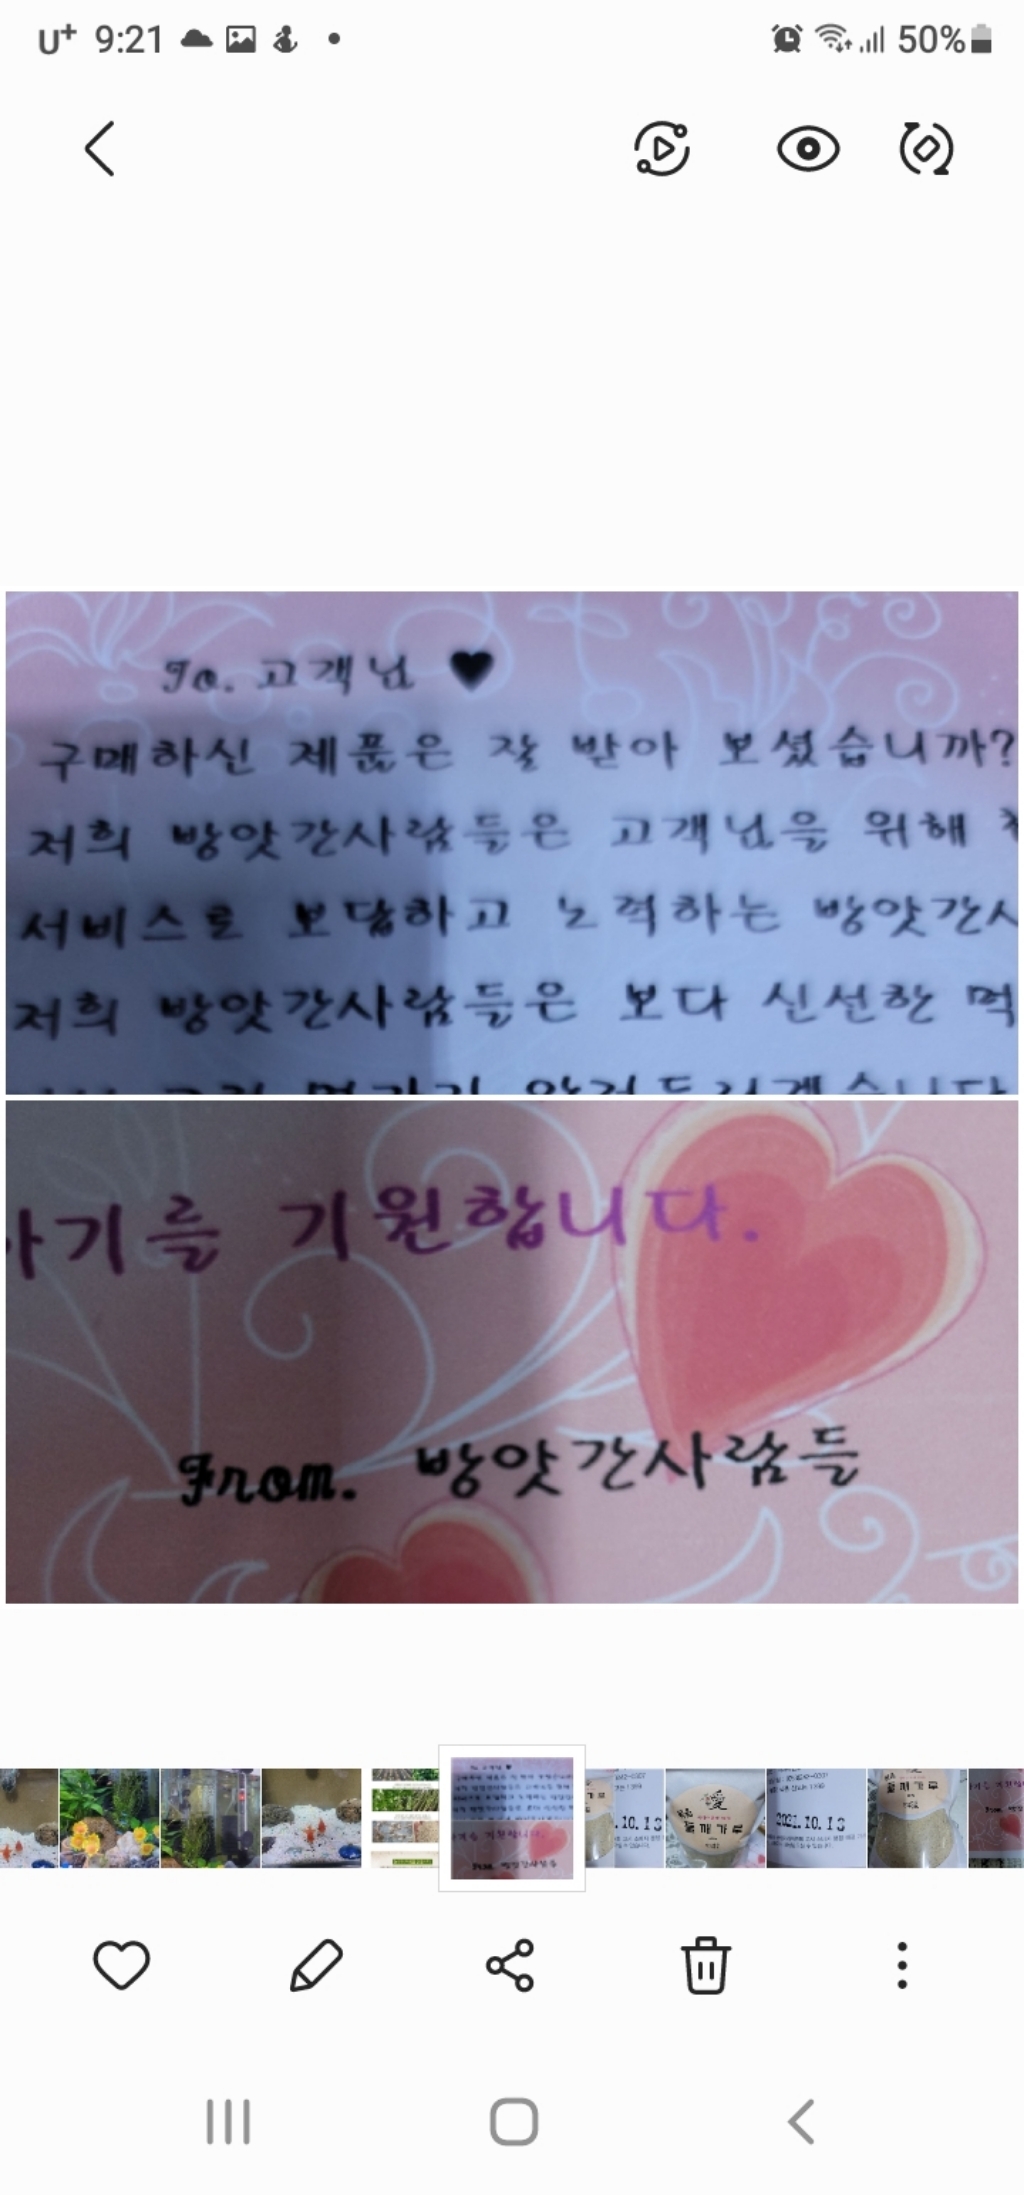 U+ 9:21 50%
To. 고객님 ♥
구매하신 제품은 잘 받아 보셨습니까?
저희 방앗간사람들은 고객님을 위해
서비스로 보답하고 노력하는 방앗간
저희 방앗간사람들은 보다 신선한 먹
기를 기원합니다.
From. 방앗간사람들
들깨가루
.10.13
2021.10.13